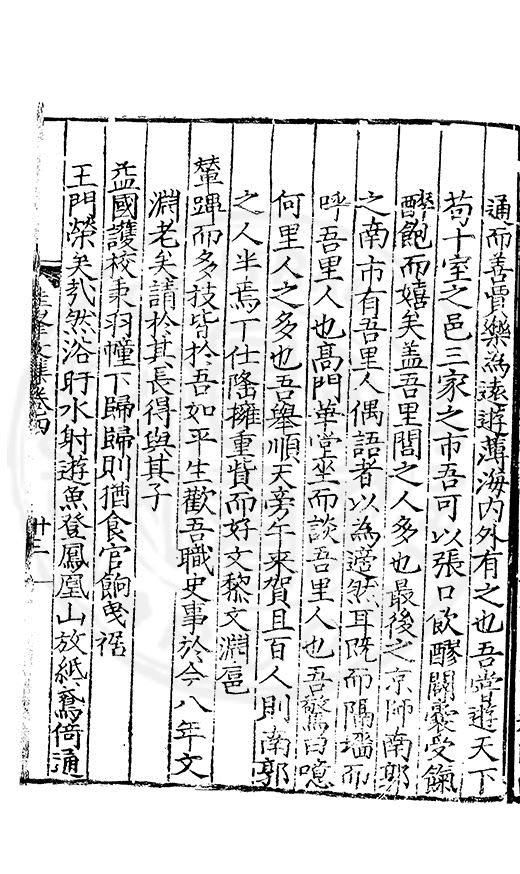 通而善賈樂為遠遊薄海內外有之也吾嘗遊天下
苟十室之邑三家之市吾可以張口飲醪關豢受餼
醉飽而嬉矣盖吾里閭之人多也最後之京師南郭
之南市有吾里人偶語者以為適然耳既而隔墻而
呼吾里人也高門華堂坐而談吾里人也吾驚曰噫
何里人之多也吾舉順天旁午来賀且百人則南郭
之人半焉丁仕隆擁重貲而好文黎文淵
輦蹕而多技皆於吾如平生歡吾職史事於今八年文
淵老矣請於其長得與其子
益國護校秉羽幢下歸歸則猶食官餉曵裾
王門榮矣㢤然浴盱水射遊魚登鳳凰山放紙鳶倚通
文集卷四
廿二